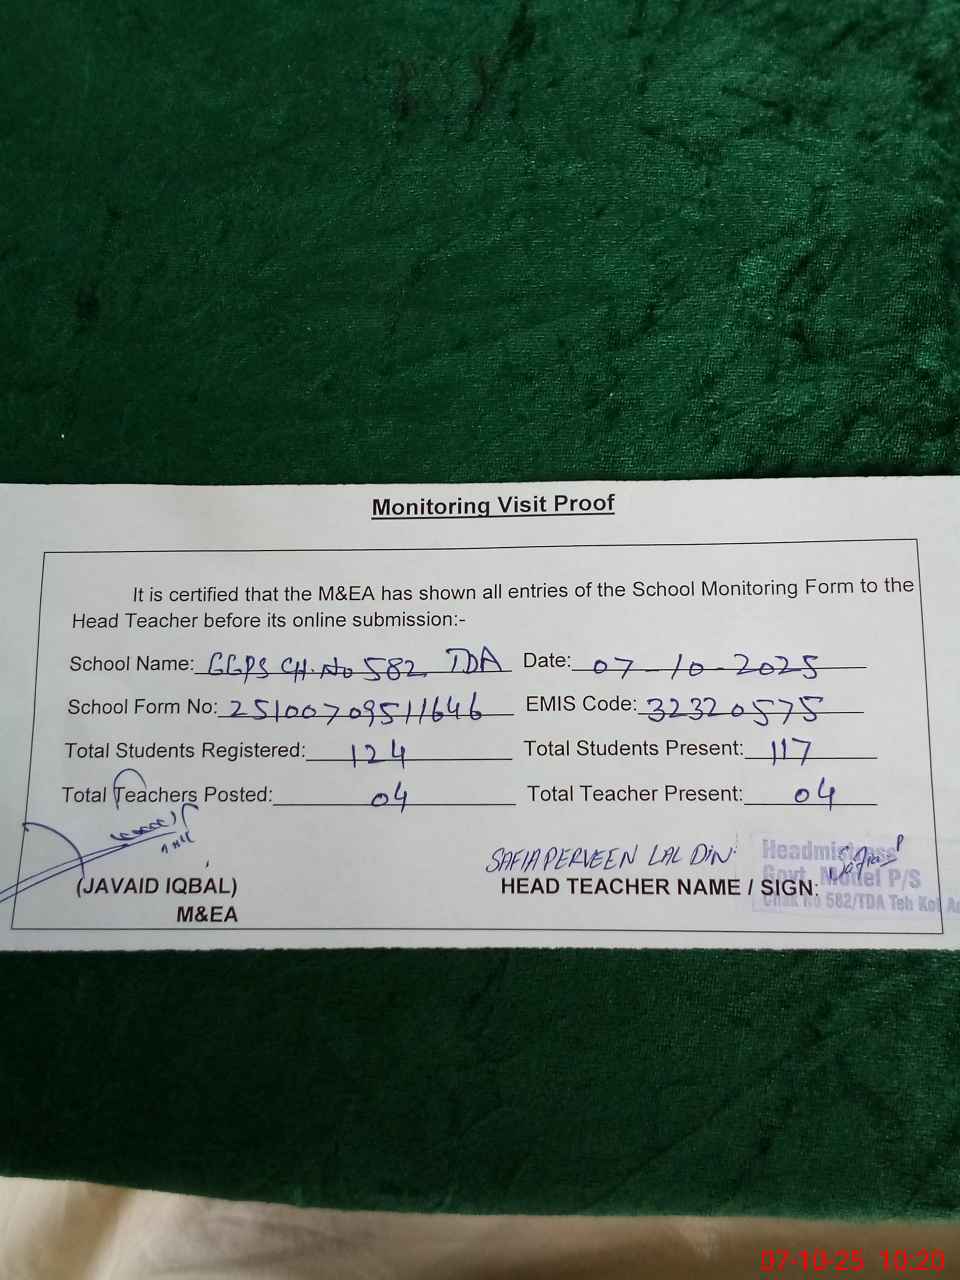 Monitoring Visit Proof
It is certified that the M&EA has shown all entries of the School Monitoring Form to the
Head Teacher before its online submission:-
School Name: GGPS CH.No 582 TDA Date: 07-10-2025
School Form No: 25100709511646 EMIS Code: 32320575
Total Students Registered: 124 Total Students Present: 117
Total Teachers Posted: 04 Total Teacher Present: 04
SAFIA PERVEEN LAL DIN
(JAVAID IQBAL) HEAD TEACHER NAME / SIGN:
M&EA
Headmistress
Govt. Model P/S
Chak No 582/TDA Teh Kot
07-10-25 10:20